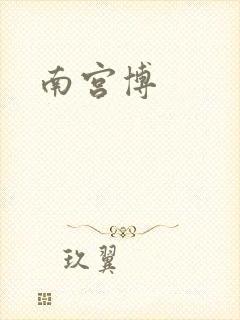 南宫博
玖翼